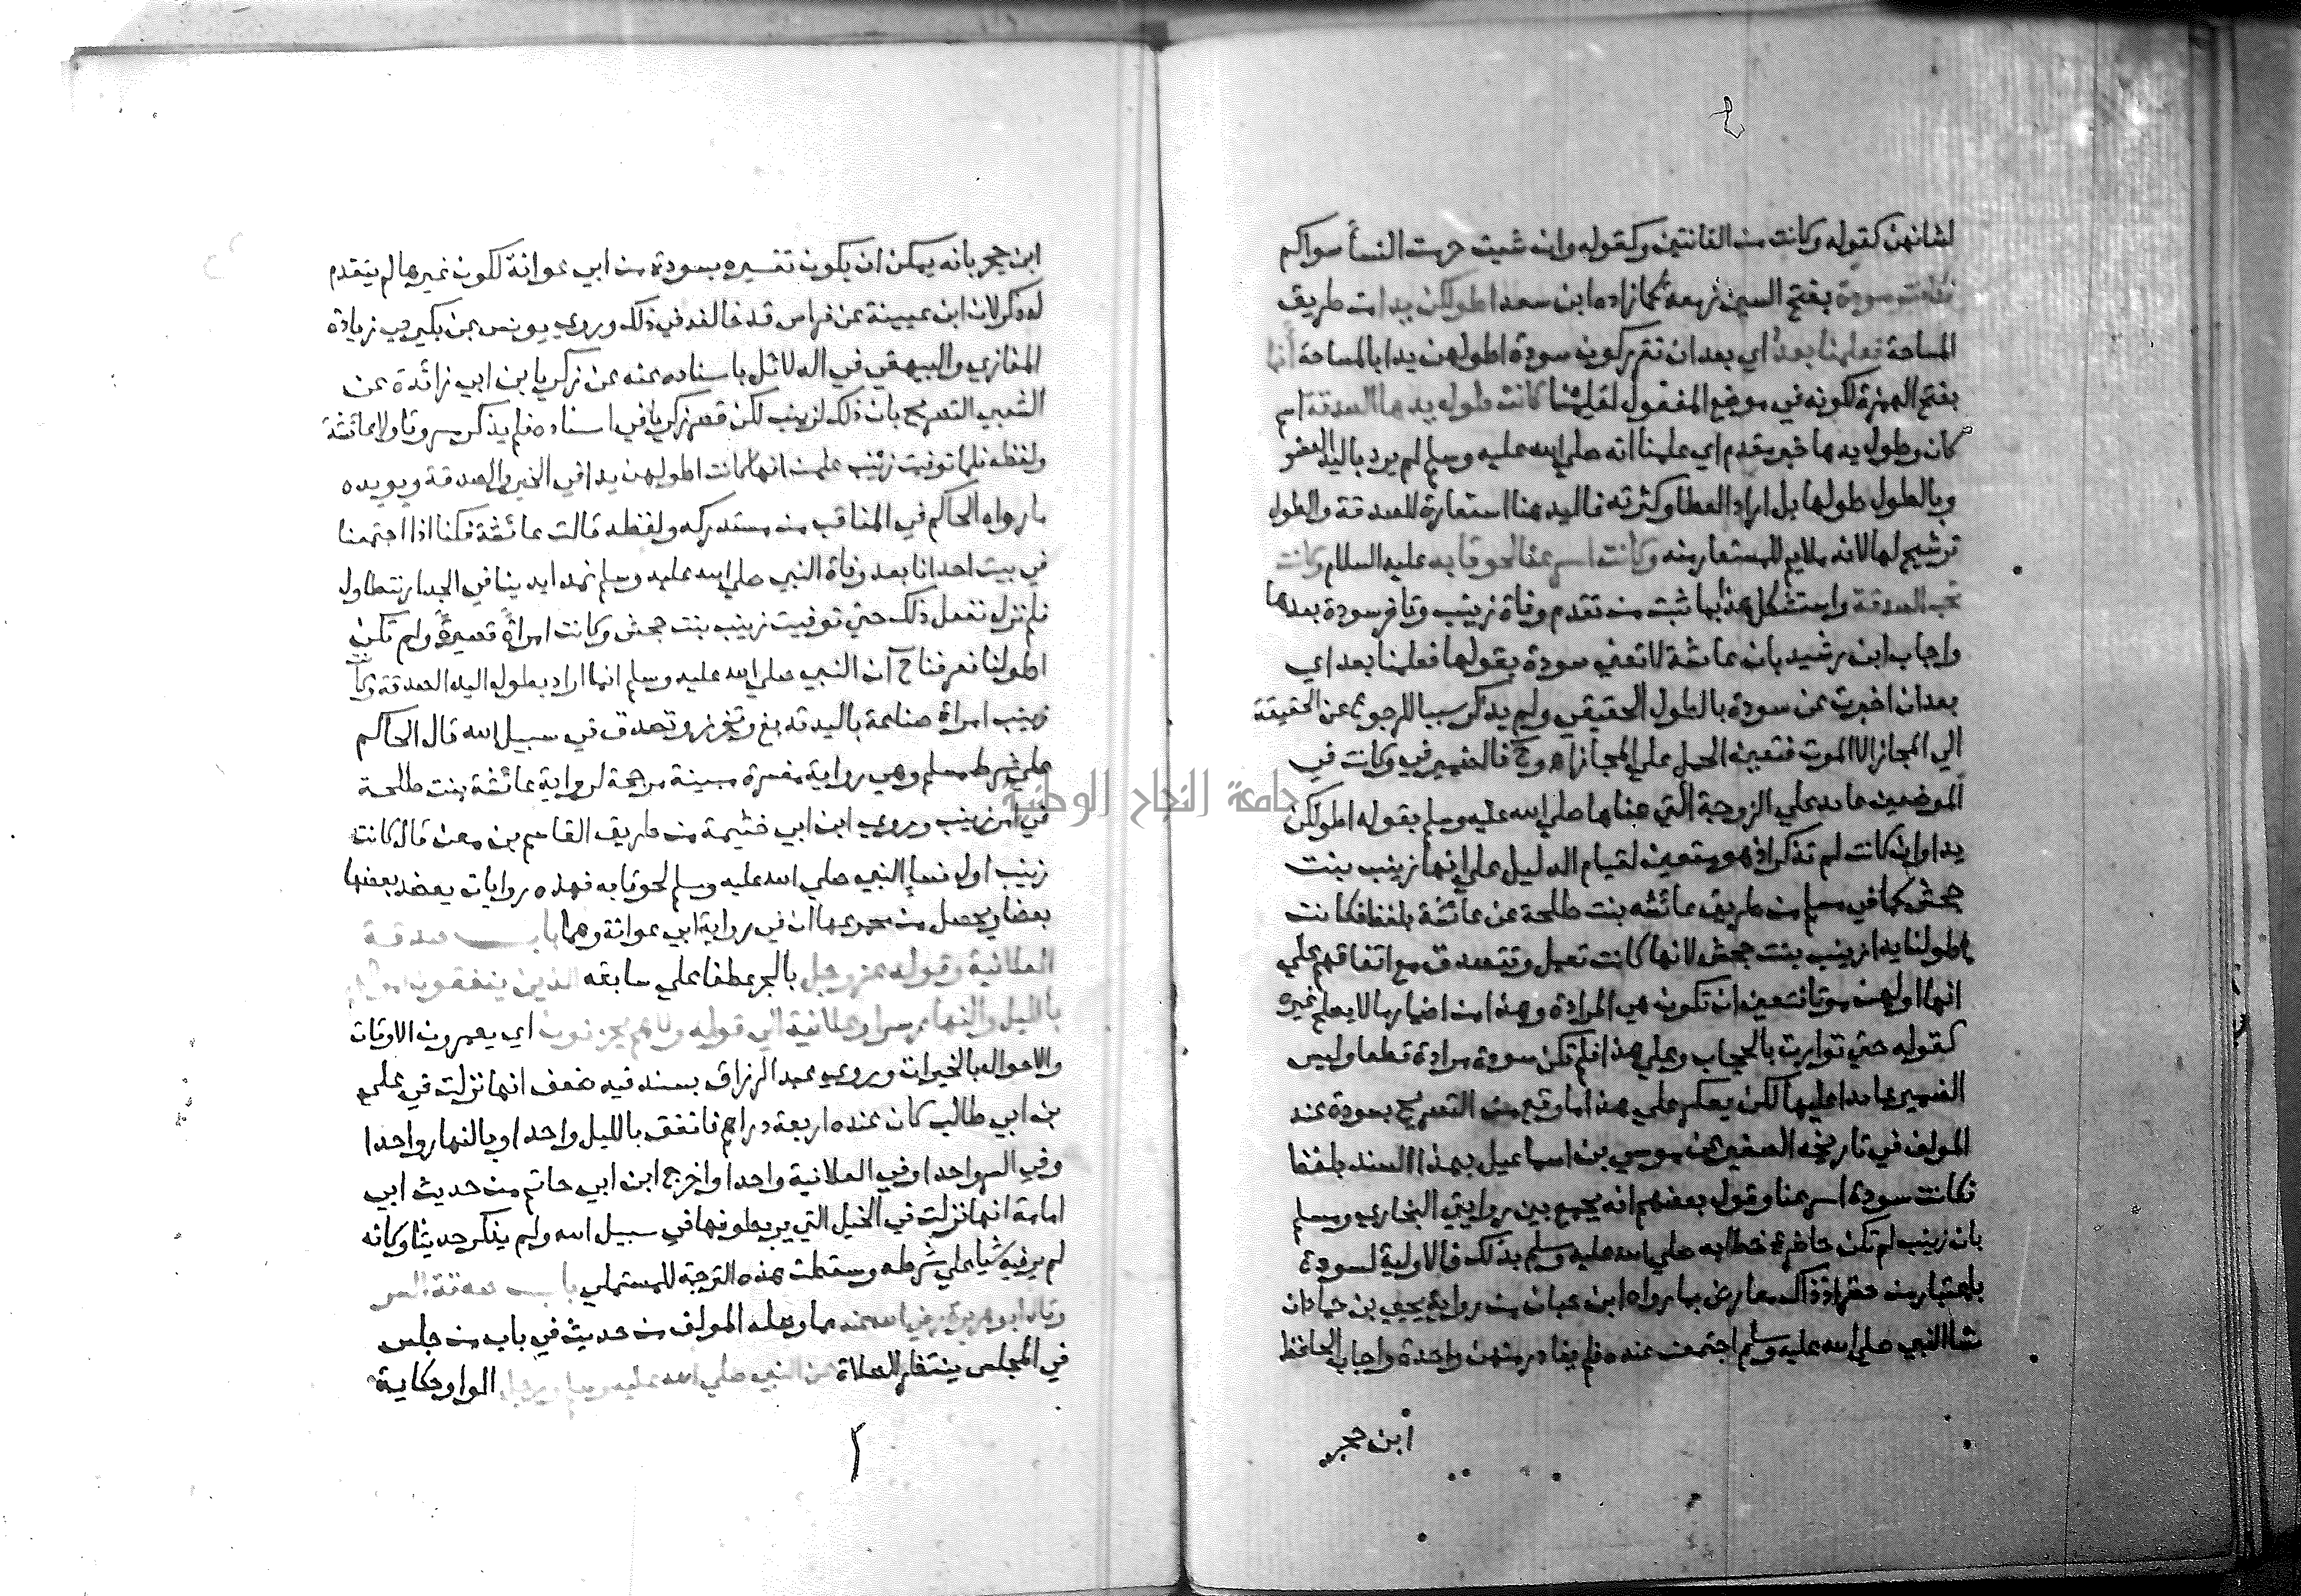 لشانهن كقوله وكانت من القانتين وكقوله وان شيت حرمت النسأ سواكم
فكانت سودة بفتح السين زمعة كما زاده ابن سعد اطولكن يدا من طريق
المساحة فعلمنا بعدُ اي بعد ان تقرر كون سودة اطولهن يدا بالمساحة أنما
بفتح الهمزة لكونه في موضع المفعول لعلمنا كانت طول يدها الصدقة اسم
كان وطول يدها خبر مقدم اي علمنا انه صلي الله عليه وسلم لم يرد باليد العضو
وبالطول طولها بل اراد العطا وكثرته فاليد هنا استعارة للصدقة والطول
ترشيح لها لانه ملايم للمستعار منه وكانت اسرعنا لحوقا به عليه السلام وكانت
تحب الصدقة واستشكل هذا بما ثبت من تقدم وفاة زينب وتاخر سودة بعدها
واجاب ابن رشيد بان عائشة لا تعني سودة بقولها فعلمنا بعد اي
بعد ان اخبرت عن سودة بالطول الحقيقي ولم يذكر سببا للرجوع عن الحقيقة
الي المجاز الا الموت فتعين الحمل علي المجاز اه وح فالضمير في وكانت في
الموضعين عايد علي الزوجة التي عناها صلي الله عليه وسلم بقوله اطولكن
يدا وان كانت لم تذكر اذ هو متعين لقيام الدليل علي انها زينب بنت
جحش كما في مسلم من طريق عائشه بنت طلحة عن عائشة بلفظ فكانت
اطولنا يدا زينب بنت جحش لانها كانت تعمل وتتصدق مع اتفاقهم علي
انها اولهن موتا فتعين ان تكون هي المرادة وهذا من اضمار ما لا يصلح غيره
كقوله حتي توارت بالحجاب وعلي هذا فلم تكن سودة مرادة قطعا وليس
الضمير عايدا عليها لكن يعكر علي هذا ما وقع من التصريح بسودة عند
المولف في تاريخه الصغير عن موسي بن اسماعيل بهذا السند بلفظ
فكانت سودة اسرعنا وقول بعضهم انه يجمع بين روايتي البخاري ومسلم
بان زينب لم تكن حاضرة خطابه صلي الله عليه وسلم بذلك فالاولية لسودة
باعتبار من حضر اذ ذاك معارض بما رواه ابن حبان من رواية يحيي بن حماد ان
نسا النبي صلي الله عليه وسلم اجتمعن عنده فلم يغادر منهن واحدة واجاب الحافظ
ابن حجر
ابن حجر بانه يمكن ان يكون تفسيره بسودة من ابي عوانة لكون غيرها لم يتقدم
له ذكر لان ابن عيينة عن فراس قد خالفه في ذلك وروي يونس بن بكير في زيادة
المغازي والبيهقي في الدلائل باسناده عنه عن زكريا بن ابي زائدة عن
الشعبي التصريح بان ذلك لزينب لكن قصر زكريا في اسناده فلم يذكر مسروقا ولا عائشة
ولفظه فلما توفيت زينب علمن انها كانت اطولهن يدا في الخير والصدقة ويويده
ما رواه الحاكم في المناقب من مستدركه ولفظه قالت عائشة فكنا اذا اجتمعنا
في بيت احدانا بعد وفاة النبي صلي الله عليه وسلم نمد ايدينا في الجدار نتطاول
فلم نزل نفعل ذلك حتي توفيت زينب بنت جحش وكانت امراةً قصيرةً ولم تكن
اطولنا فعرفنا ح ان النبي صلي الله عليه وسلم انما اراد بطول اليد الصدقة وكانت
زينب امراة صناعة باليد تدبغ وتخرز وتصدق في سبيل الله قال الحاكم
علي شرط مسلم وهي رواية مفسرة مبينة مرجحة لرواية عائشة بنت طلحة
في امر زينب وروي ابن ابي خثيمة من طريق القاسم بن معن قال كانت
زينب اول نسا النبي صلي الله عليه وسلم لحوقا به فهذه روايات يعضد بعضها
بعضا ويحصل من مجموعها ان في رواية ابي عوانة وهما باب صدقة
العلانية وقوله عز وجل بالجر عطفا علي سابقه الذين ينفقون اموالهم
بالليل والنهار سرا وعلانية الي قوله ولا هم يحزنون اي يعمرون الاوقات
والاحوال بالخيرات وروي عبد الرزاق بسند فيه ضعف انها نزلت في علي
بن ابي طالب كان عنده اربعة دراهم فانفق بالليل واحدا وبالنهار واحدا
وفي السر واحدا وفي العلانية واحدا واخرج ابن ابي حاتم من حديث ابي
امامة انها نزلت في الخيل التي يربطونها في سبيل الله ولم يذكر حديثا وكانه
لم ير فيه شيا علي شرطه وسقطت هذه الترجمة للمستملي باب صدقة السر
وقال ابو هريرة رضي الله عنه مما وصله المولف من حديث في باب من جلس
في المجلس ينتظر الصلاة عن النبي صلي الله عليه وسلم ورجل الواو حكاية
جامعة النجاح الوطنية